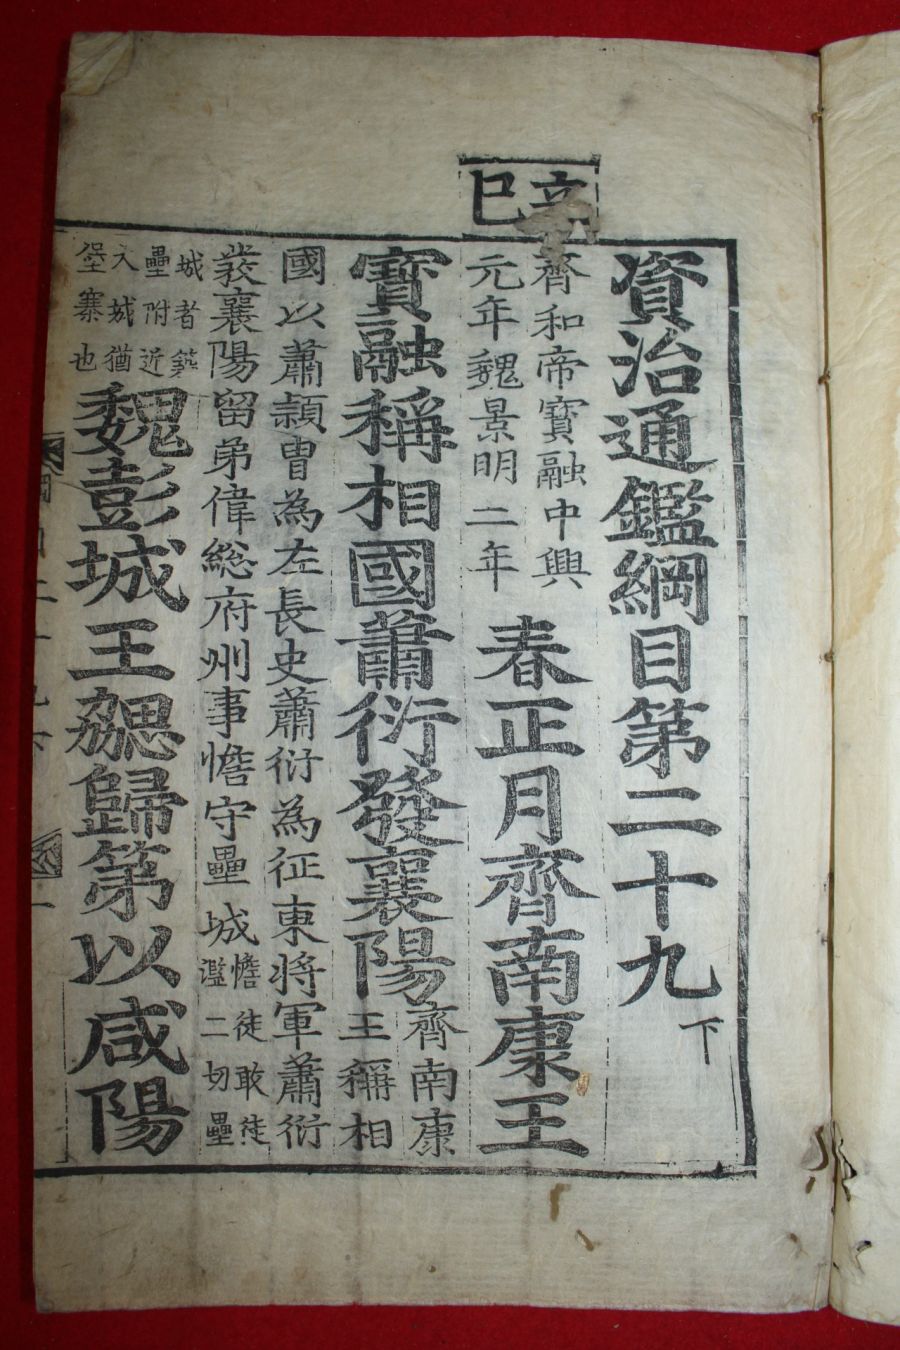 辛巳
資治通鑑綱目第二十九下
齊和帝寶融中興
元年魏景明二年
春正月齊南康王
寶融稱相國蕭衍發襄陽
齊南康
王稱相
國以蕭頴胄為左長史蕭衍為征東將軍蕭衍
發襄陽留弟偉總府州事憺守壘城
憺徒敢徒
濫二切壘
城者築
壘附近
入城猶
堡寨也
魏彭城王勰歸第以咸陽